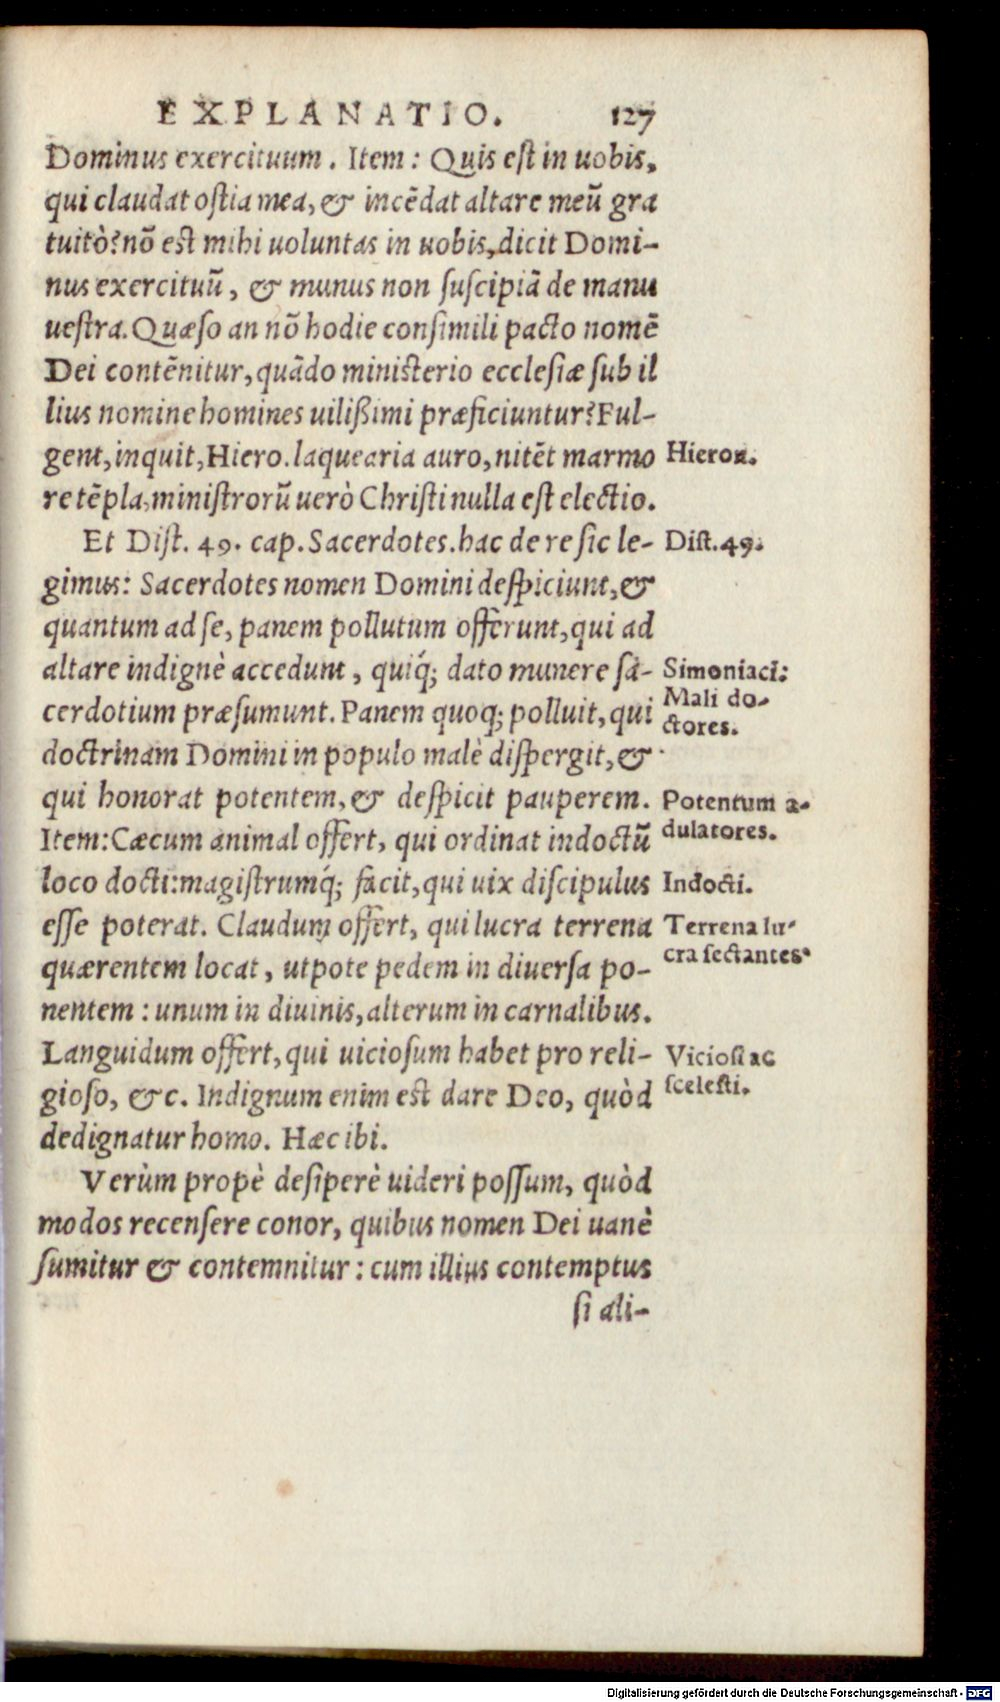 EXPLANATIO. 127
Dominus exercituum. Item: Quis est in uobis,
qui claudat ostia mea, & incẽdat altare meũ gra
tuitò? nõ est mihi uoluntas in uobis, dicit Domi-
nus exercituũ, & munus non suscipiã de manu
uestra. Quæso an nõ hodie consimili pacto nomẽ
Dei contẽnitur, quãdo ministerio ecclesiæ sub il
lius nomine homines uilißimi præficiuntur? Ful-
gent, inquit, Hiero. laquearia auro, nitẽt marmo
Hieron.
re tẽpla, ministrorũ uerò Christi nulla est electio.
Et Dist. 49. cap. Sacerdotes. hac de re sic le-
Dist. 49.
gimus: Sacerdotes nomen Domini despiciunt, &
quantum ad se, panem pollutum offerunt, qui ad
altare indignè accedunt, quiq́; dato munere sa-
Simoniaci:
cerdotium præsumunt. Panem quoq; polluit, qui
Mali do-
ctores.
doctrinam Domini in populo malè dispergit, &
qui honorat potentem, & despicit pauperem.
Potentum a-
dulatores.
Item: Cæcum animal offert, qui ordinat indoctũ
loco docti: magistrumq́; facit, qui uix discipulus
Indocti.
esse poterat. Claudum offert, qui lucra terrena
Terrena lu-
cra sectantes.
quærentem locat, utpote pedem in diuersa po-
nentem: unum in diuinis, alterum in carnalibus.
Languidum offert, qui uiciosum habet pro reli-
Viciosi ac
scelesti.
gioso, &c. Indignum enim est dare Deo, quòd
dedignatur homo. Hæc ibi.
Verùm propè desiperè uideri possum, quòd
modos recensere conor, quibus nomen Dei uanè
sumitur & contemnitur: cum illius contemptus
si ali-
Digitalisierung gefördert durch die Deutsche Forschungsgemeinschaft - DFG